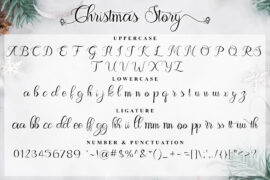 Christmas Story
UPPERCASE
A B C D E F G H I J K L M N O P Q R S
T U V W X Y Z
LOWERCASE
a b c d e f g h i j k l m n o p q r s t u v w x y z
LIGATURE
aa bb cc dd ee gg kk ii ll mm nn oo pp rr ss tt uu th
NUMBER & PUNCTUATION
0123456789